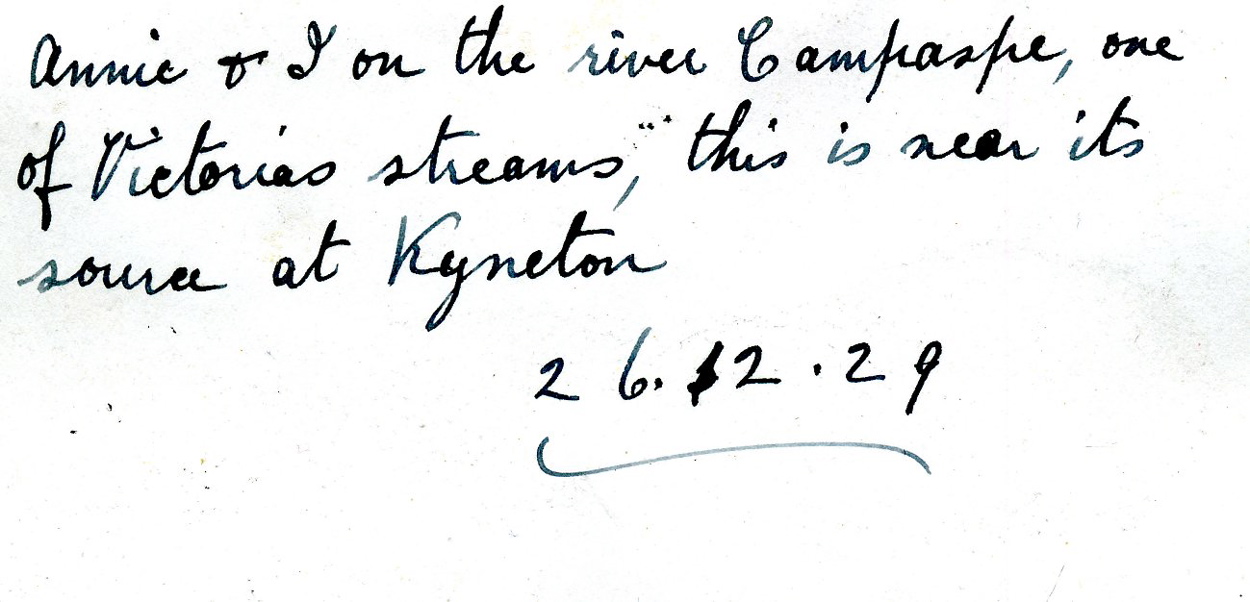 Annie & I on the river Campaspe, one
of Victorias streams, this is near its
source at Kyneton
26.12.29